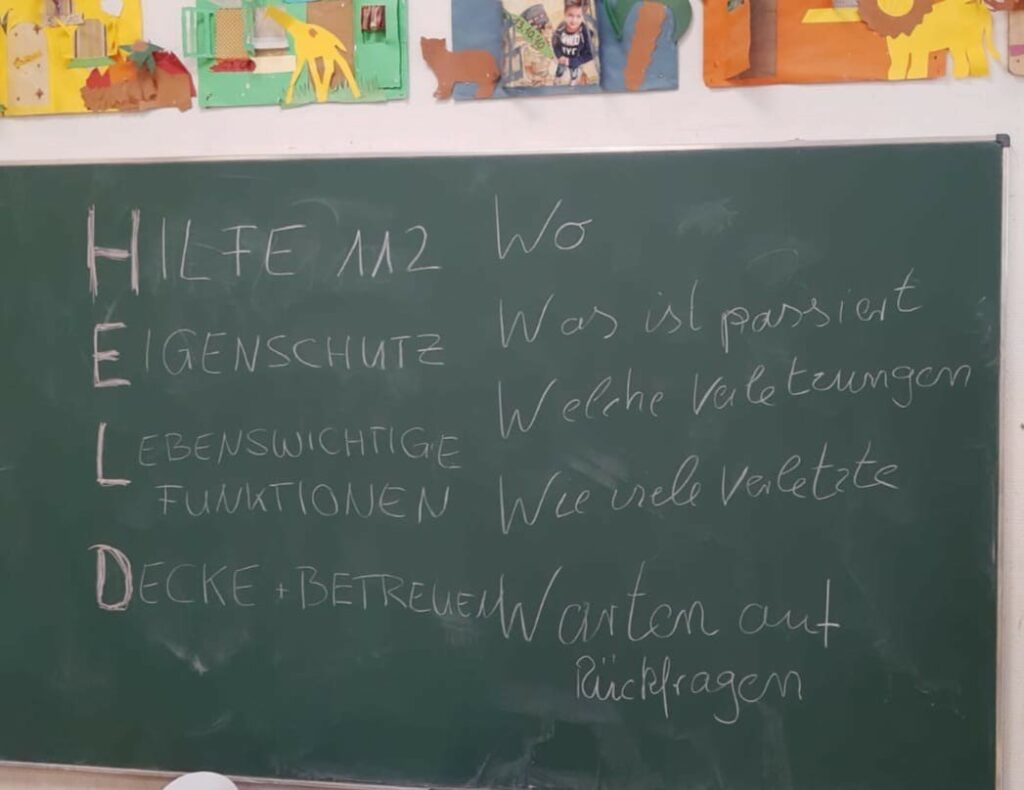 HILFE 112
EIGENSCHUTZ
LEBENSWICHTIGE
FUNKTIONEN
DECKE + BETREUEN
Wo
Was ist passiert
Welche Verletzungen
Wie viele Verletzte
Warten auf
Rückfragen